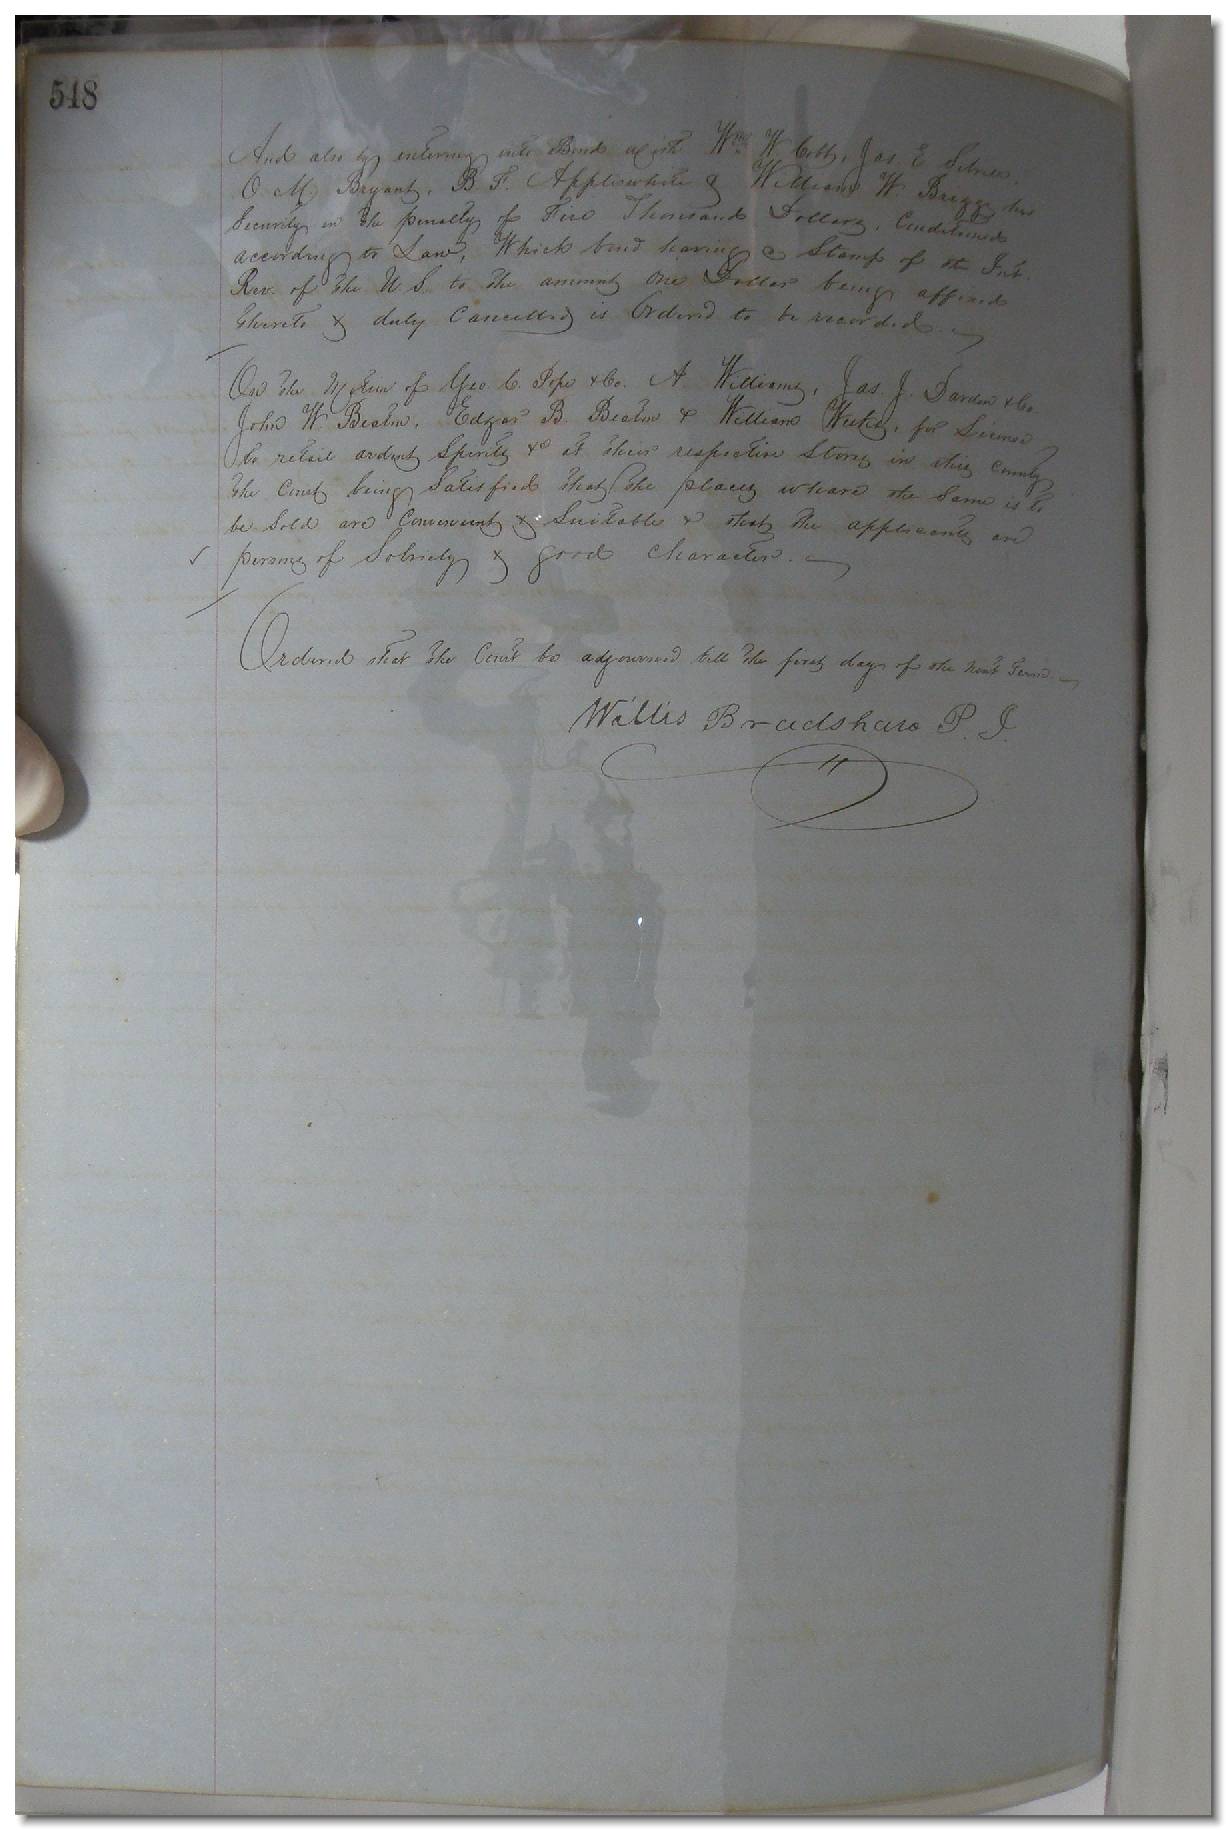 518
And also by entering into Bond with Wm. W Cobb, Jas. E
O. M. Bryant, B. F. Applewhite & William W. Briggs his
Security in the penalty of Five Thousand Dollars, Conditioned
according to Law, Which bond having a Stamp of the Int.
Rev. of the U. S. to the amount One Dollar being affixed
thereto & duly Cancelled is Ordered to be recorded.
On the Motion of Geo. C. Pope & Co. A Williams, Jas. J. Darden & Co.
John W. Beaton, Edgar B. Beaton & William for License
to retail ardent Spirits &c at their respective Stores in this County
the Court being Satisfied that the places where the Same is to
be Sold are Convenient & Suitable & that the applicants are
persons of Sobriety & good Character.
Ordered that the Court be adjourned till the first day of the next Term.
Willis Bradshaw P. J.